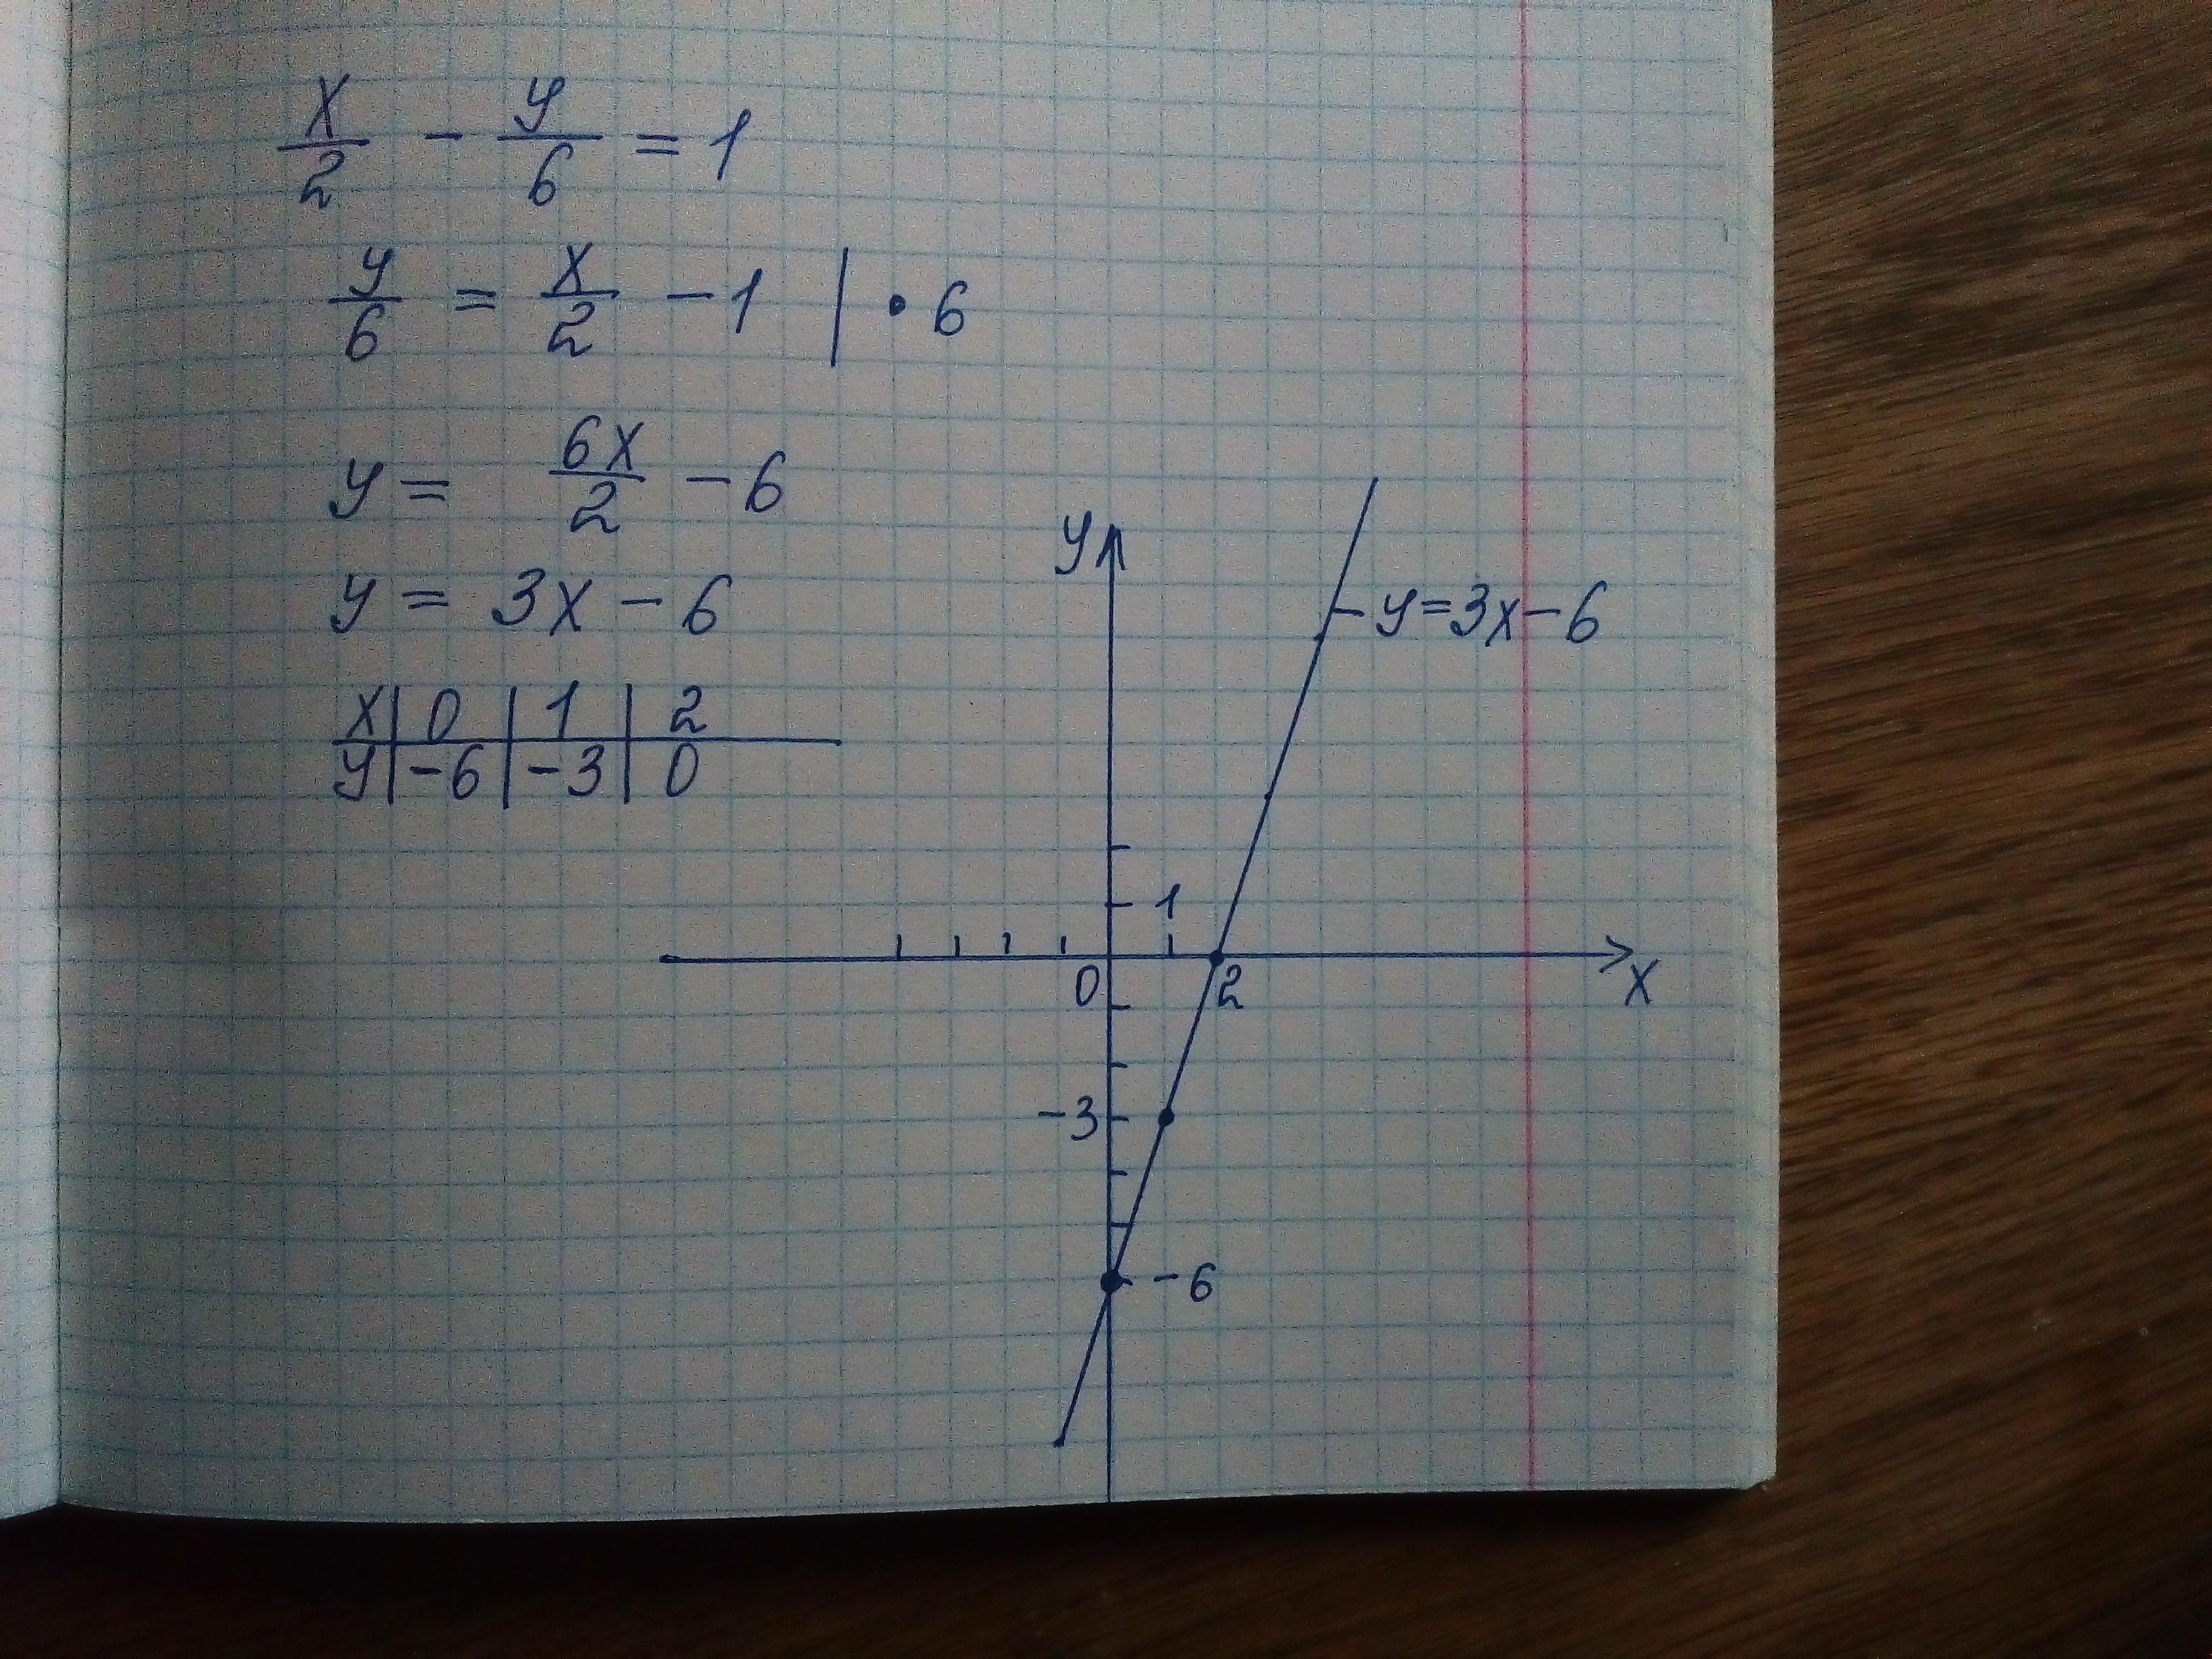 x/2 - y/6 = 1
y/6 = x/2 - 1 | · 6
y = 6x/2 - 6
y = 3x - 6
x | 0 | 1 | 2
y | -6 | -3 | 0
y
y=3x-6
1
0 2 x
-3
-6